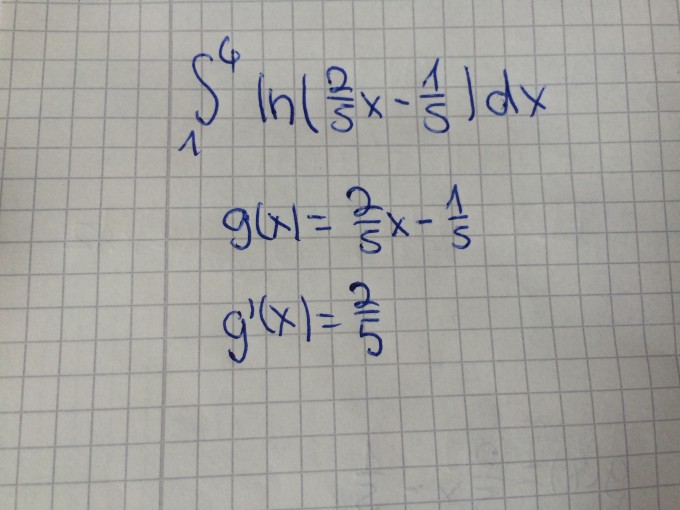 ∫₁⁴ ln(2/5x - 1/5) dx
g(x) = 2/5x - 1/5
g'(x) = 2/5